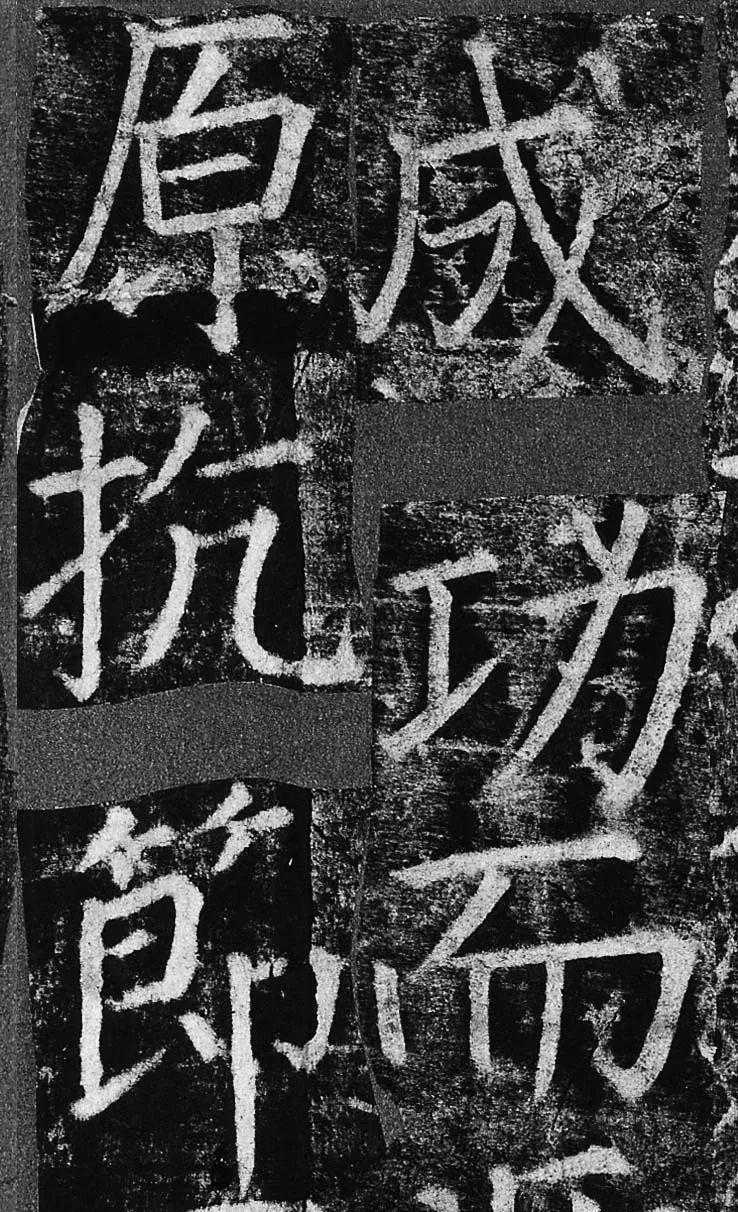 成功而
原抗節